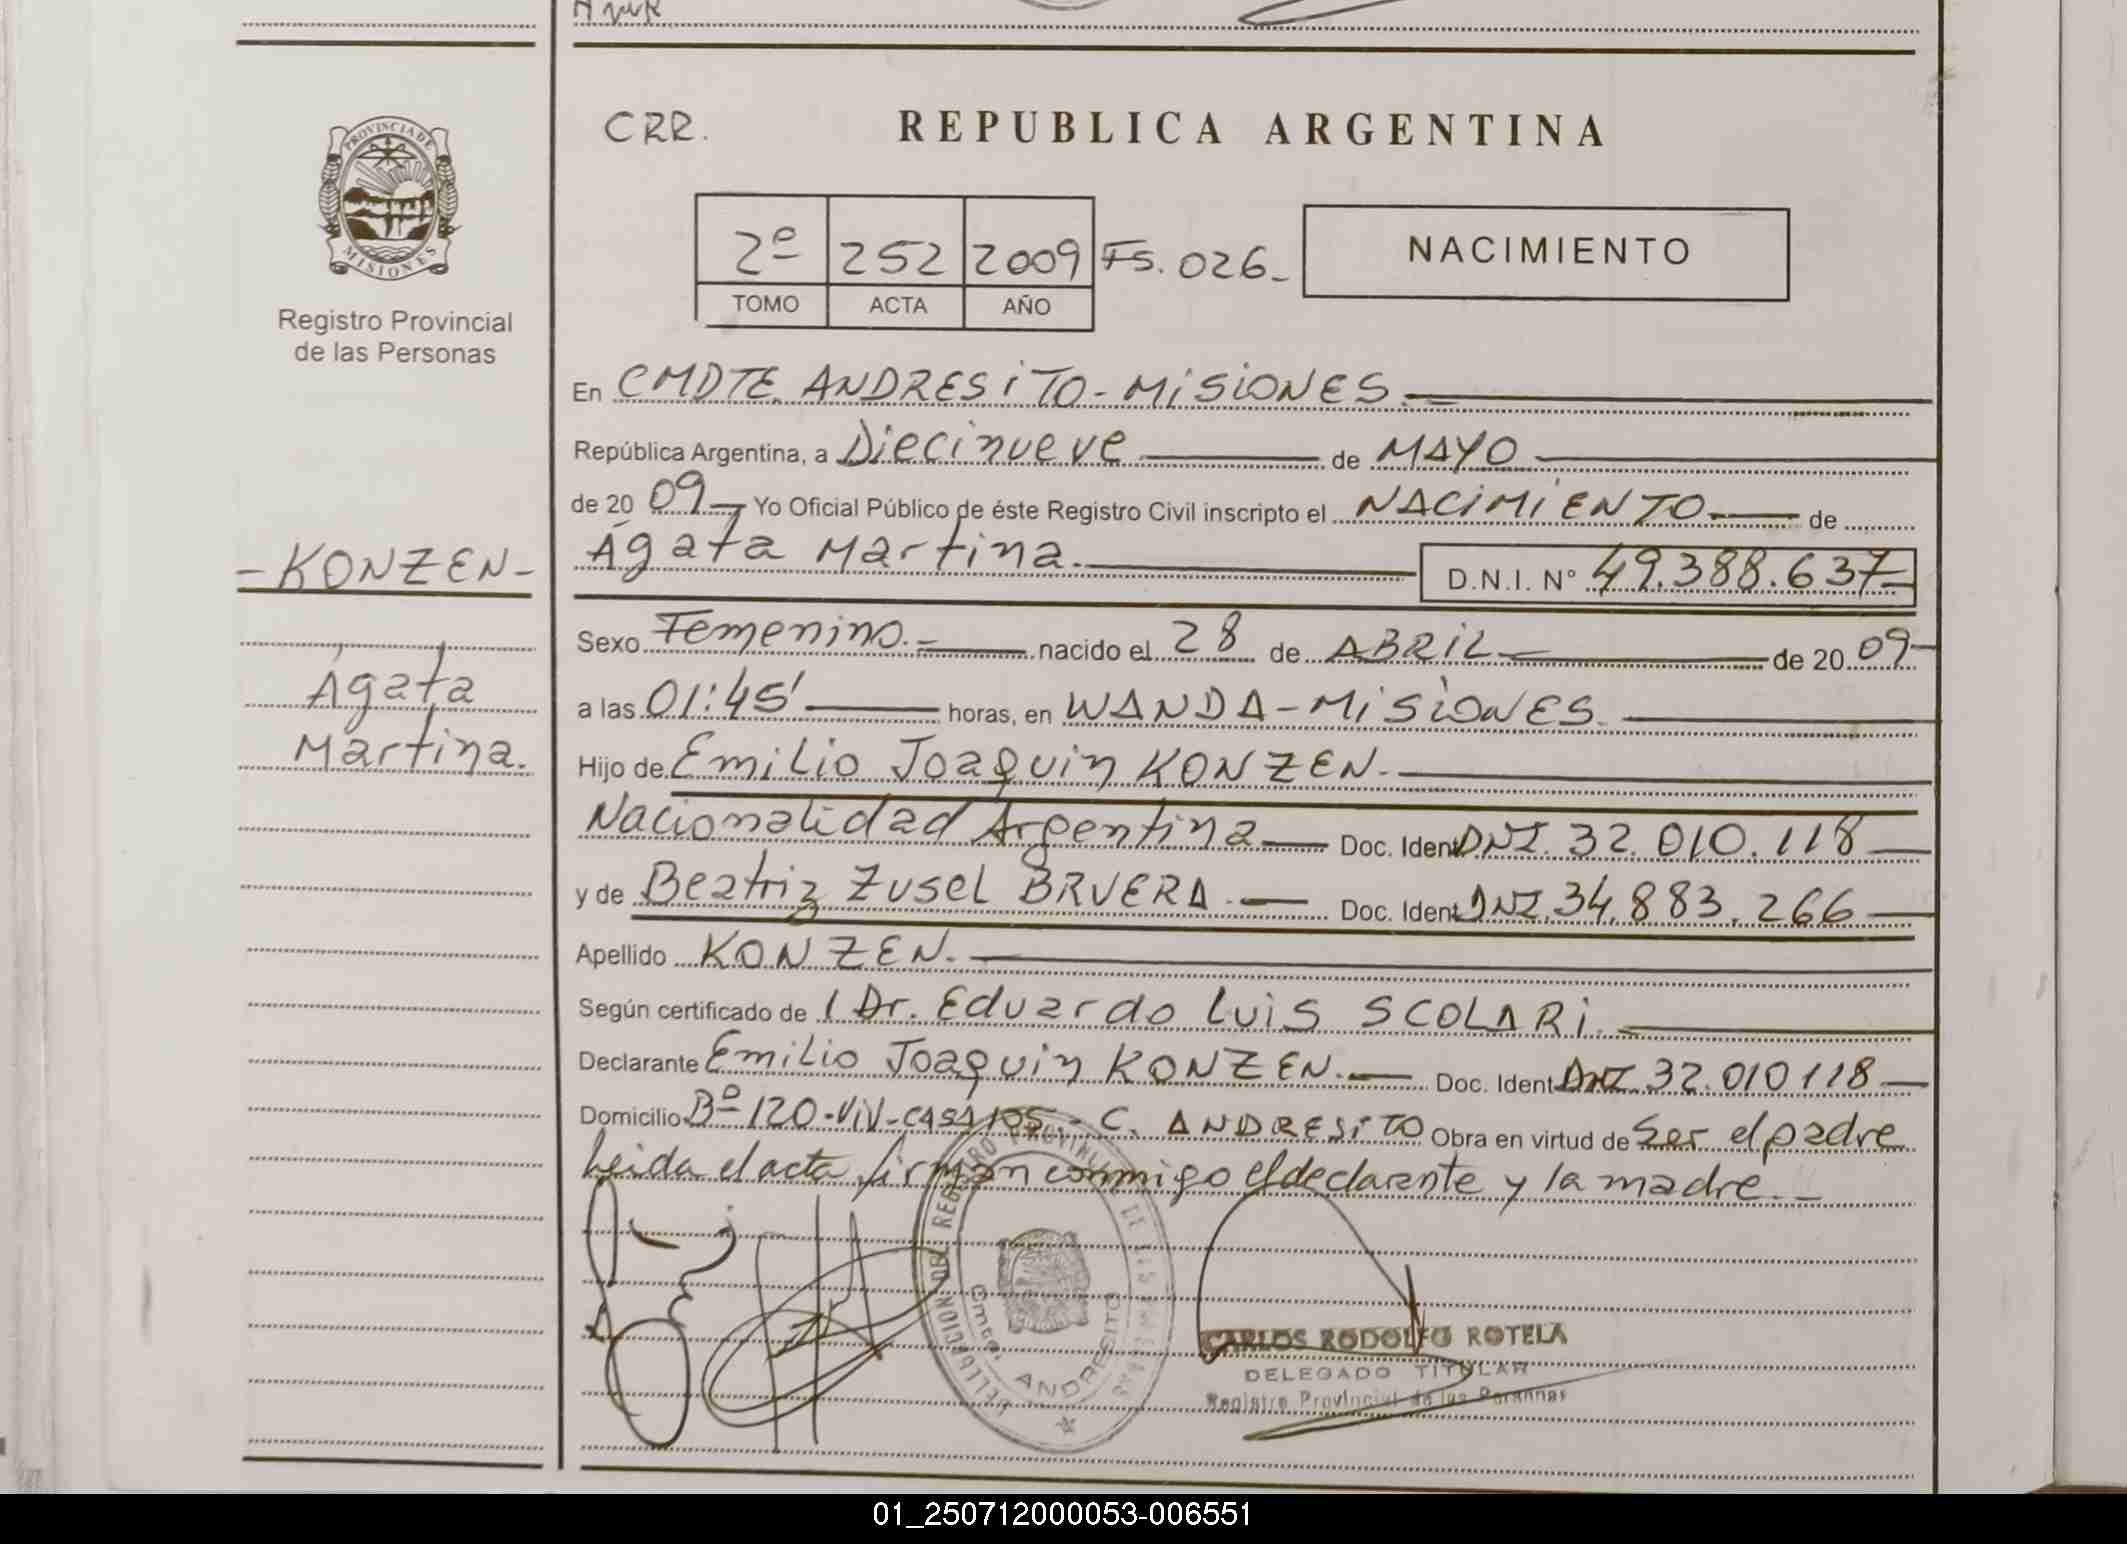 CRR.
REPUBLICA ARGENTINA
PROVINCIA DE
MISIONES
Registro Provincial
de las Personas
2º 252 2009 Fs. 026_
TOMO ACTA AÑO
NACIMIENTO
En CMDTE. ANDRESiTO-MiSiONES.
República Argentina, a Diecinueve de MAYO
de 2009 Yo Oficial Público de éste Registro Civil inscripto el NACiMiENTO de
Ágata Martina. D.N.I. Nº 49.388.637
-KONZEN-
Ágata
Martina.
Sexo Femenino. nacido el 28 de ABRiL de 2009
a las 01:45' horas, en WANDA-MiSiONES.
Hijo de Emilio Joaquin KONZEN.
Nacionalidad Argentina Doc. Ident DNI. 32.010.118
y de Beatriz Zusel BRUERA. Doc. Ident DNI. 34.883.266
Apellido KONZEN.
Según certificado de l Dr. Eduardo Luis SCOLARi.
Declarante Emilio Joaquin KONZEN. Doc. Ident DNI 32.010118
Domicilio Bº 120-ViV- C. ANDRESiTO Obra en virtud de Ser el padre
Leida el acta, firman conmigo el declarante y la madre.
DELEGACION DEL REGISTRO PROVINCIAL DE LAS PERSONAS
Cmte. ANDRESITO
CARLOS RODOLFO ROTELA
DELEGADO TITULAR
Registro Provincial de las Personas
01_250712000053-006551